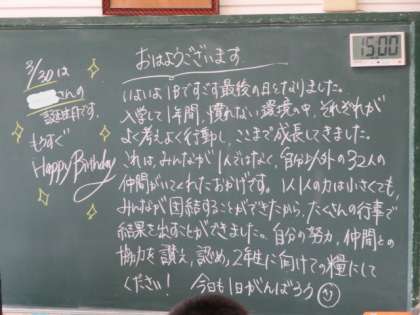 3/30は
さんの
誕生日です。
もうすぐ
Happy Birthday
おはようございます
いよいよ1Bですごす最後の日となりました。
入学して1年間、慣れない環境の中、それぞれが
よく考えよく行動し、ここまで成長してきました。
これは、みんなが1人ではなく、自分以外の32人の
仲間がいてくれたおかげです。1人1人の力は小さくても、
みんなが団結することができたから、たくさんの行事で
結果を出すことができました。自分の努力、仲間との
協力を讃え、認め、2年生に向けての糧にして
ください! 今日も1日がんばろう
15:00